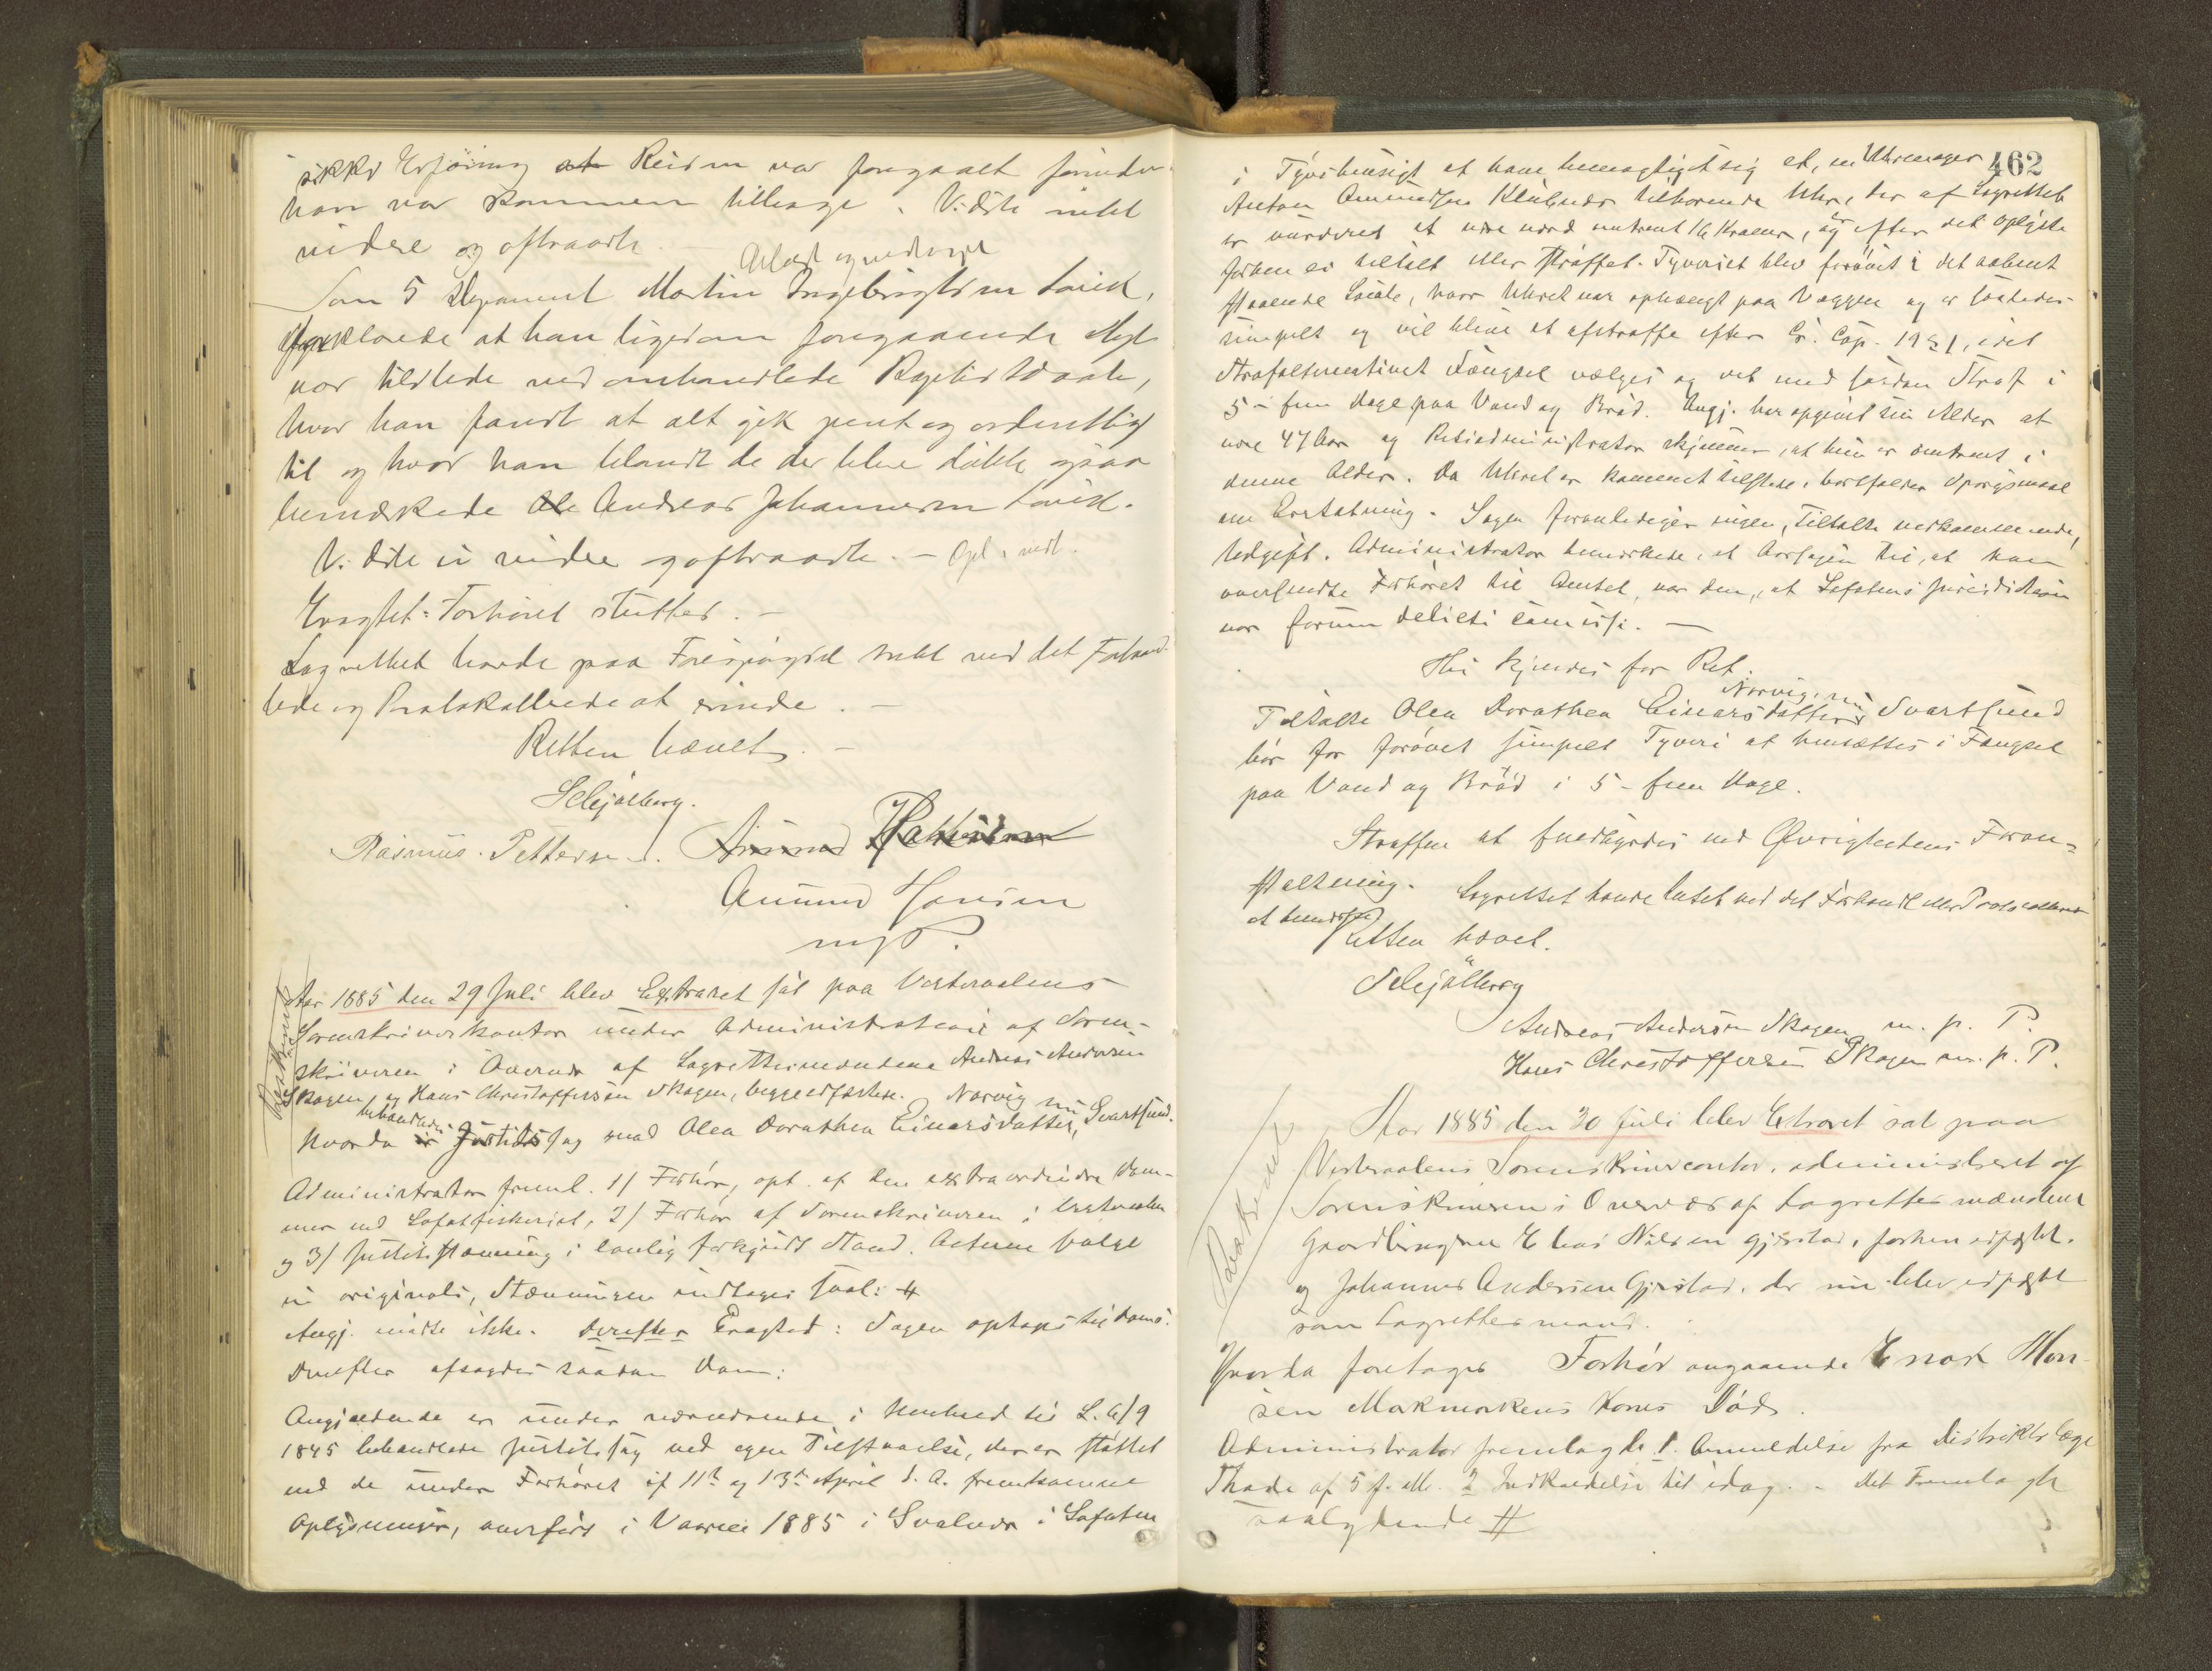 sikker Erfaring at Reisen var foregaaet förinden
han var kommen tilbage. Vidste intet
videre og aftraadte. Oplæst og vedtaget
Som 5 Deponent Martin Ingebrigtsen
forklarede at han ligesom foregaaende Dept
var tilstede ved omhandlede
hvor han fandt at alt gik pent og ordentligt
til og hvor han blandt de der blev døbte ogsaa
bemærkede Ole Andreas Johannesen
Vidste ei videre og aftraadte. - Opl. & vedt.
Eragtet: Forhöret sluttes. -
Lagrettet havde paa Forespörgsel intet ved det Forhand-
lede og Protokollerede at erindre. -
Retten hævet. -
Selcjälberg.
Rasmus Pettersen. Amund
Amund Hansen
m. p. P.
Aar 1885 den 29 Juli blev Extraret sat paa Vesteraalens
Sorenskriverkontor under Administration af Soren-
skriveren i Overvær af Lagrettesmændene Andreas Andersen
Skagen og Hans Christoffersen Skagen, begge edfæstede.
Hvorda behandledes Justitssag mod Olea Dorathea Einarsdatter, Norvig nu Svartsund.
Administrator freml. 1/ Forhör, opt. af den extraordinære Dom-
mer ved Lofotfiskeriet, 2/ Forhör af Sorenskriveren i Vesteraalen
og 3/ Justitsstævning i lovlig forkyndt Stand. Acterne følge
in originali, Stævningen indtages saal: #
Angj. mødte ikke. Derefter Eragtet: Sagen optages til Doms.
Derefter afsagdes saadan Dom:
Angjældende er under nærværende i Henhold til L. 6/9
1845 behandlede Justitssag ved egen Tilstaaelse, der er støttet
ved de under Forhöret af 11te og 13de April d. A. fremkomne
Oplysninger, overført i Vaaren 1885 i Svolvær i Lofoten
462
i Tyvshensigt at have bemægtiget sig et, en Uhrmager
Anton Amundsen tilhörende Uhr, der af Lagrettet
er vurderet at være værd omtrent 16 Kroner, og er efter det oplyste
forhen ei tiltalt eller straffet. Tyveriet blev forövet i det aabent
staaende Locale, hvor Uhret var ophængt paa Væggen og er saaledes
simpelt og vil blive at afstraffe efter Cr. Cap. 19 § 1, idet
Strafalternativet Fængsel vælges og det med saadan Straf i
5 - fem Dage paa Vand og Bröd. Angj. har opgivet sin Alder at
være 47 Aar og Retsadministrator skjønner, at hun er omtrent i
denne Alder. Da Uhret er kommet tilstede, bortfalder Spörgsmaal
om Erstatning. Sagen foranlediger ingen, Tiltalte vedkommende,
Udgift. Administrator bemærkede, at Aarsagen til, at han
oversendte Forhöret til Amtet, var den, at Lofotens Jurisdiction
var forum delicti comissi. -
Thi kjendes for Ret:
Tiltalte Olea Dorathea Einarsdatter Norvig, nu Svartsund
bör for forövet simpelt Tyveri at hensættes i Fængsel
paa Vand og Bröd i 5 - fem Dage.
Straffen at fuldbyrdes ved Øvrighedens Foran-
staltning. Lagrettet havde Intet ved det Forhandl. eller Protocollerede
at bemærke
Retten hævet.
Selcjälberg
Andreas Andersen Skagen m. p. P.
Hans Christoffersen Skagen m. p. P.
Aar 1885 den 30 Juli blev Extraret sat paa
Vesteraalens Sorenskrivercontor, administreret af
Sorenskriveren i Overvær af Lagrettesmændene
Gaardbruger Elias Nilsen Gjerstad, forhen edfæstet.
og Johannes Andersen Gjerstad, der nu blev edfæstet
som Lagrettesmand.
Hvorda foretages Forhör angaaende Enok Mon-
sen Kones Död.
Administrator fremlagde 1. Anmeldelse fra Distriktslæge
Thode af 5 f. M. 2 Indkaldelse til idag. - Det Fremlagte
saalydende #